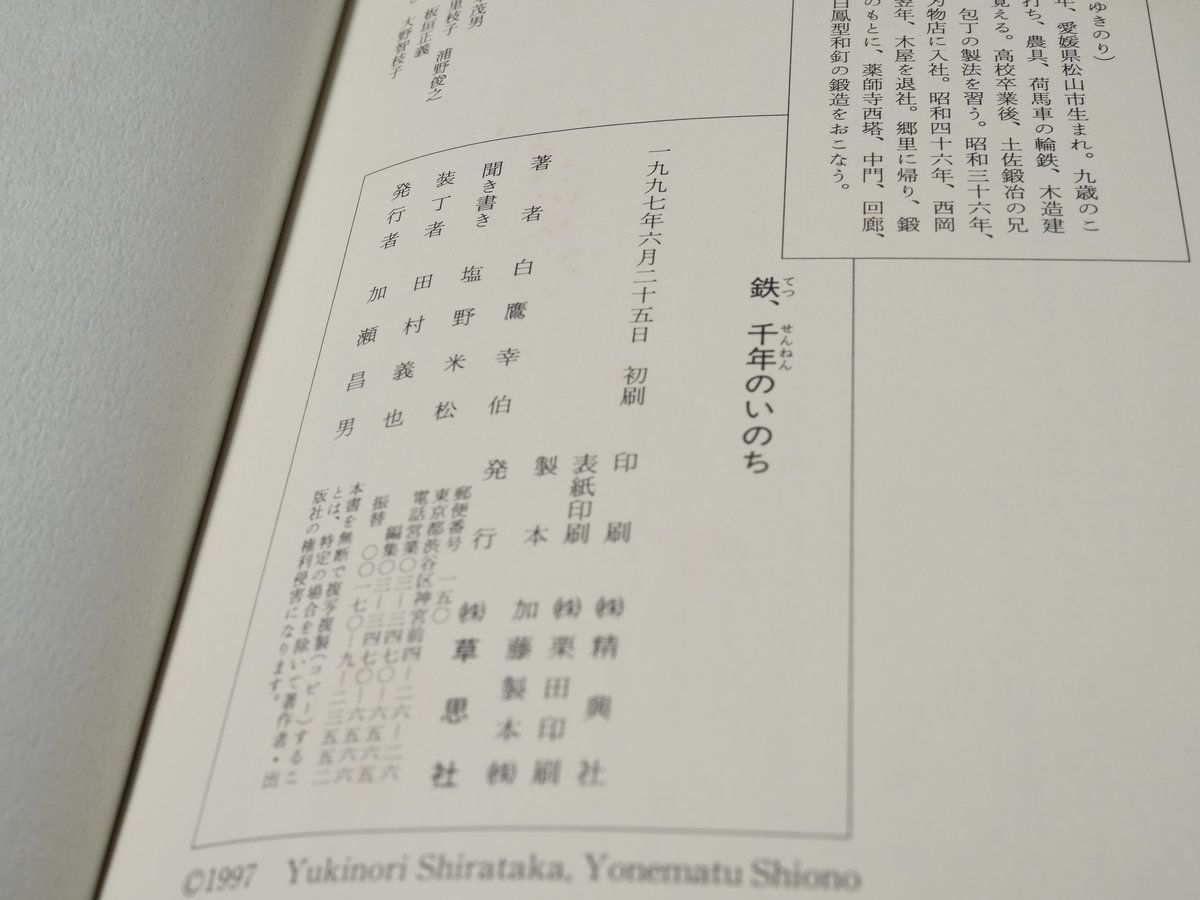 ゆきのり）
年、愛媛県松山市生まれ。九歳のこ
打ち、農具、荷馬車の輪鉄、木造建
覚える。高校卒業後、土佐鍛冶の兄
包丁の製法を習う。昭和三十六年、
刃物店に入社。昭和四十六年、西岡
翌年、木屋を退社。郷里に帰り、鍛
のもとに、薬師寺西塔、中門、回廊、
白鳳型和釘の鍛造をおこなう。
茂男
里枝子 浦野俊之
板垣正義
大野智枝子
てつ せんねん
鉄、千年のいのち
一九九七年六月二十五日 初刷
著者 白鷹幸伯
聞き書き 塩野米松
装丁者 田村義也
発行者 加瀬昌男
印刷 ㈱精興社
表紙印刷 ㈱栗田印刷
製本 加藤製本㈱
発行 ㈱草思社
郵便番号 一五〇
東京都渋谷区神宮前四－二六－二六
電話営業〇三－三四七〇－六五六五
編集〇三－三四七〇－六五六六
振替 〇〇一七〇－九－二三五五二
本書を無断で複写複製（コピー）するこ
とは、特定の場合を除いて著作者・出
版社の権利侵害になります。
©1997 Yukinori Shirataka, Yonematu Shiono